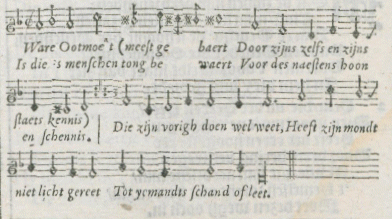 Ware Ootmoe^t (meest ge baert Door zijns zelfs en zijns
Is die 's menschen tong be waert Voor des naestens hoon
staets kennis)
en schennis. Die zijn vorigh doen wel weet, Heeft zijn mondt
niet licht gereet Tot ycmandts schand of leet.